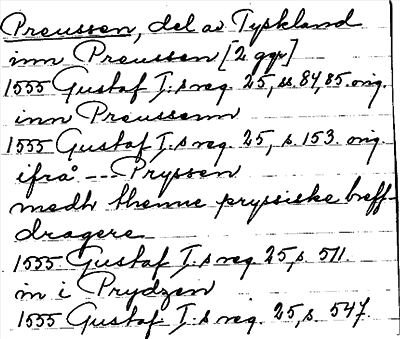 Preussen, del av Tyskland
inn Preussen [2 ggr]
1555 Gustaf I:s reg. 25, ss. 84, 85. orig.
inn Preussenn
1555 Gustaf I:s reg. 25, s. 153. orig.
ifrå --- Pryssen
medh thenne pryssiske breff-
dragere
1555 Gustaf I:s reg. 25, s. 511.
in i Prydzen
1555 Gustaf I:s reg. 25, s. 547.